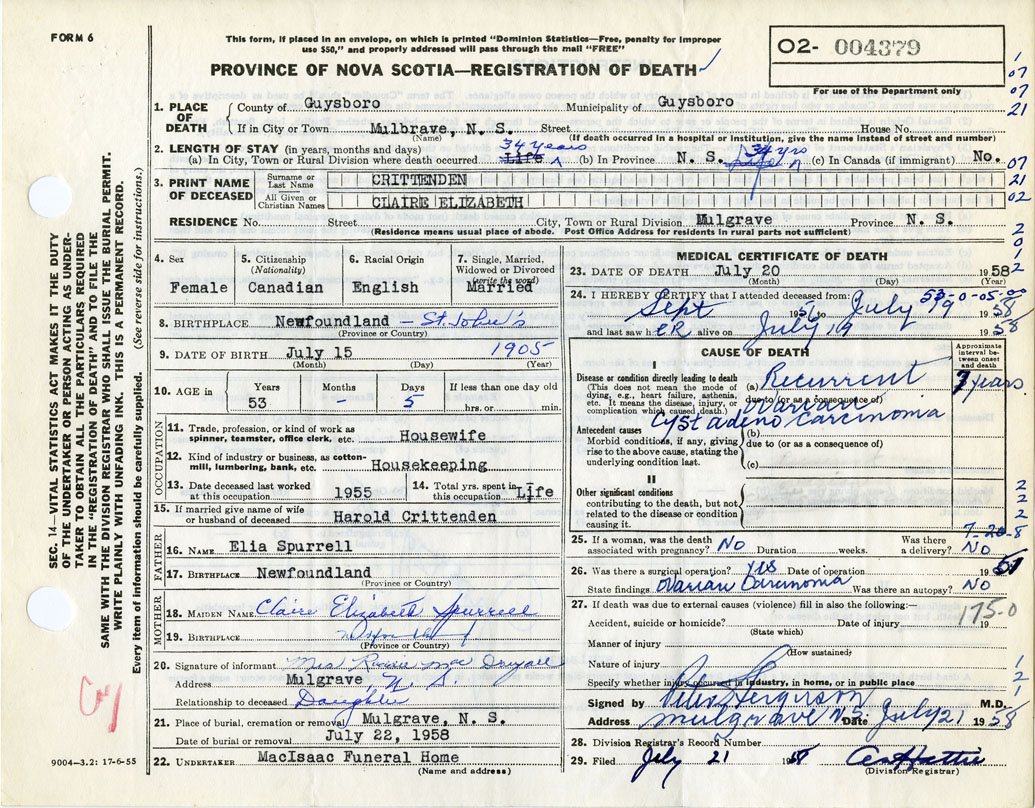 FORM 6
This form, if placed in an envelope, on which is printed "Dominion Statistics—Free, penalty for improper
use $50," and properly addressed will pass through the mail "FREE"
PROVINCE OF NOVA SCOTIA—REGISTRATION OF DEATH
O2- 004379
For use of the Department only
1. PLACE OF DEATH County of Guysboro Municipality of Guysboro
If in City or Town Mulbrave, N. S. Street House No.
(Name) (If death occurred in a hospital or institution, give the name instead of street and number)
2. LENGTH OF STAY (in years, months and days) 34 years 34 yrs
(a) In City, Town or Rural Division where death occurred Life (b) In Province N. S. Life (c) In Canada (if immigrant) No.
3. PRINT NAME OF DECEASED Surname or Last Name CRITTENDEN
All Given or Christian Names CLAIRE ELIZABETH
RESIDENCE No. Street City, Town or Rural Division Mulgrave Province N. S.
(Residence means usual place of abode. Post Office Address for residents in rural parts not sufficient)
1
07
07
21
07
21
02
2
0
1
2
SEC. 14—VITAL STATISTICS ACT MAKES IT THE DUTY
OF THE UNDERTAKER OR PERSON ACTING AS UNDER-
TAKER TO OBTAIN ALL THE PARTICULARS REQUIRED
IN THE "REGISTRATION OF DEATH" AND TO FILE THE
SAME WITH THE DIVISION REGISTRAR WHO SHALL ISSUE THE BURIAL PERMIT.
WRITE PLAINLY WITH UNFADING INK. THIS IS A PERMANENT RECORD.
Every item of information should be carefully supplied. (See reverse side for instructions.)
4. Sex Female
5. Citizenship (Nationality) Canadian
6. Racial Origin English
7. Single, Married, Widowed or Divorced (write the word) Married
8. BIRTHPLACE Newfoundland — St. John's
(Province or Country)
9. DATE OF BIRTH July 15 1905
(Month) (Day) (Year)
10. AGE in Years Months Days If less than one day old
53 - 5 hrs. or min.
OCCUPATION
11. Trade, profession, or kind of work as
spinner, teamster, office clerk, etc. Housewife
12. Kind of industry or business, as cotton-
mill, lumbering, bank, etc. Housekeeping
13. Date deceased last worked at this occupation 1955
14. Total yrs. spent in this occupation Life
15. If married give name of wife
or husband of deceased Harold Crittenden
FATHER
16. NAME Elia Spurrell
17. BIRTHPLACE Newfoundland
(Province or Country)
MOTHER
18. MAIDEN NAME Claire Elizabeth Spurrell
19. BIRTHPLACE
(Province or Country)
20. Signature of informant Mrs
Address Mulgrave, N. S.
Relationship to deceased Daughter
21. Place of burial, cremation or removal Mulgrave, N. S.
Date of burial or removal July 22, 1958
22. UNDERTAKER MacIsaac Funeral Home
(Name and address)
9004-3.2: 17-6-55
MEDICAL CERTIFICATE OF DEATH
23. DATE OF DEATH July 20 1958
(Month) (Day) (Year)
53-0-05-00
24. I HEREBY CERTIFY that I attended deceased from:
Sept 1956 to July 19 1958
and last saw her alive on July 19 1958
CAUSE OF DEATH
Approximate interval between onset and death
I
Disease or condition directly leading to death (a) Recurrent years
(This does not mean the mode of
dying, e.g., heart failure, asthenia, due to (or as a consequence of)
etc. It means the disease, injury, or Ovarian
complication which caused death.) Cystadeno Carcinoma
Antecedent causes (b)
Morbid conditions, if any, giving due to (or as a consequence of)
rise to the above cause, stating the
underlying condition last. (c)
II
Other significant conditions
contributing to the death, but not
related to the disease or condition
causing it.
2
2
2
7-20-8
25. If a woman, was the death associated with pregnancy? No Duration weeks. Was there a delivery? No
26. Was there a surgical operation? yes Date of operation 19
State findings Ovarian Carcinoma Was there an autopsy? No
27. If death was due to external causes (violence) fill in also the following:— 175-0
Accident, suicide or homicide? Date of injury 19
(State which)
Manner of injury
(How sustained)
Nature of injury
Specify whether injury occurred in industry, in home, or in public place
1
2
1
Signed by Peter Ferguson M.D.
Address Mulgrave N.S. Date July 21 1958
28. Division Registrar's Record Number
29. Filed July 21 1958
(Division Registrar)